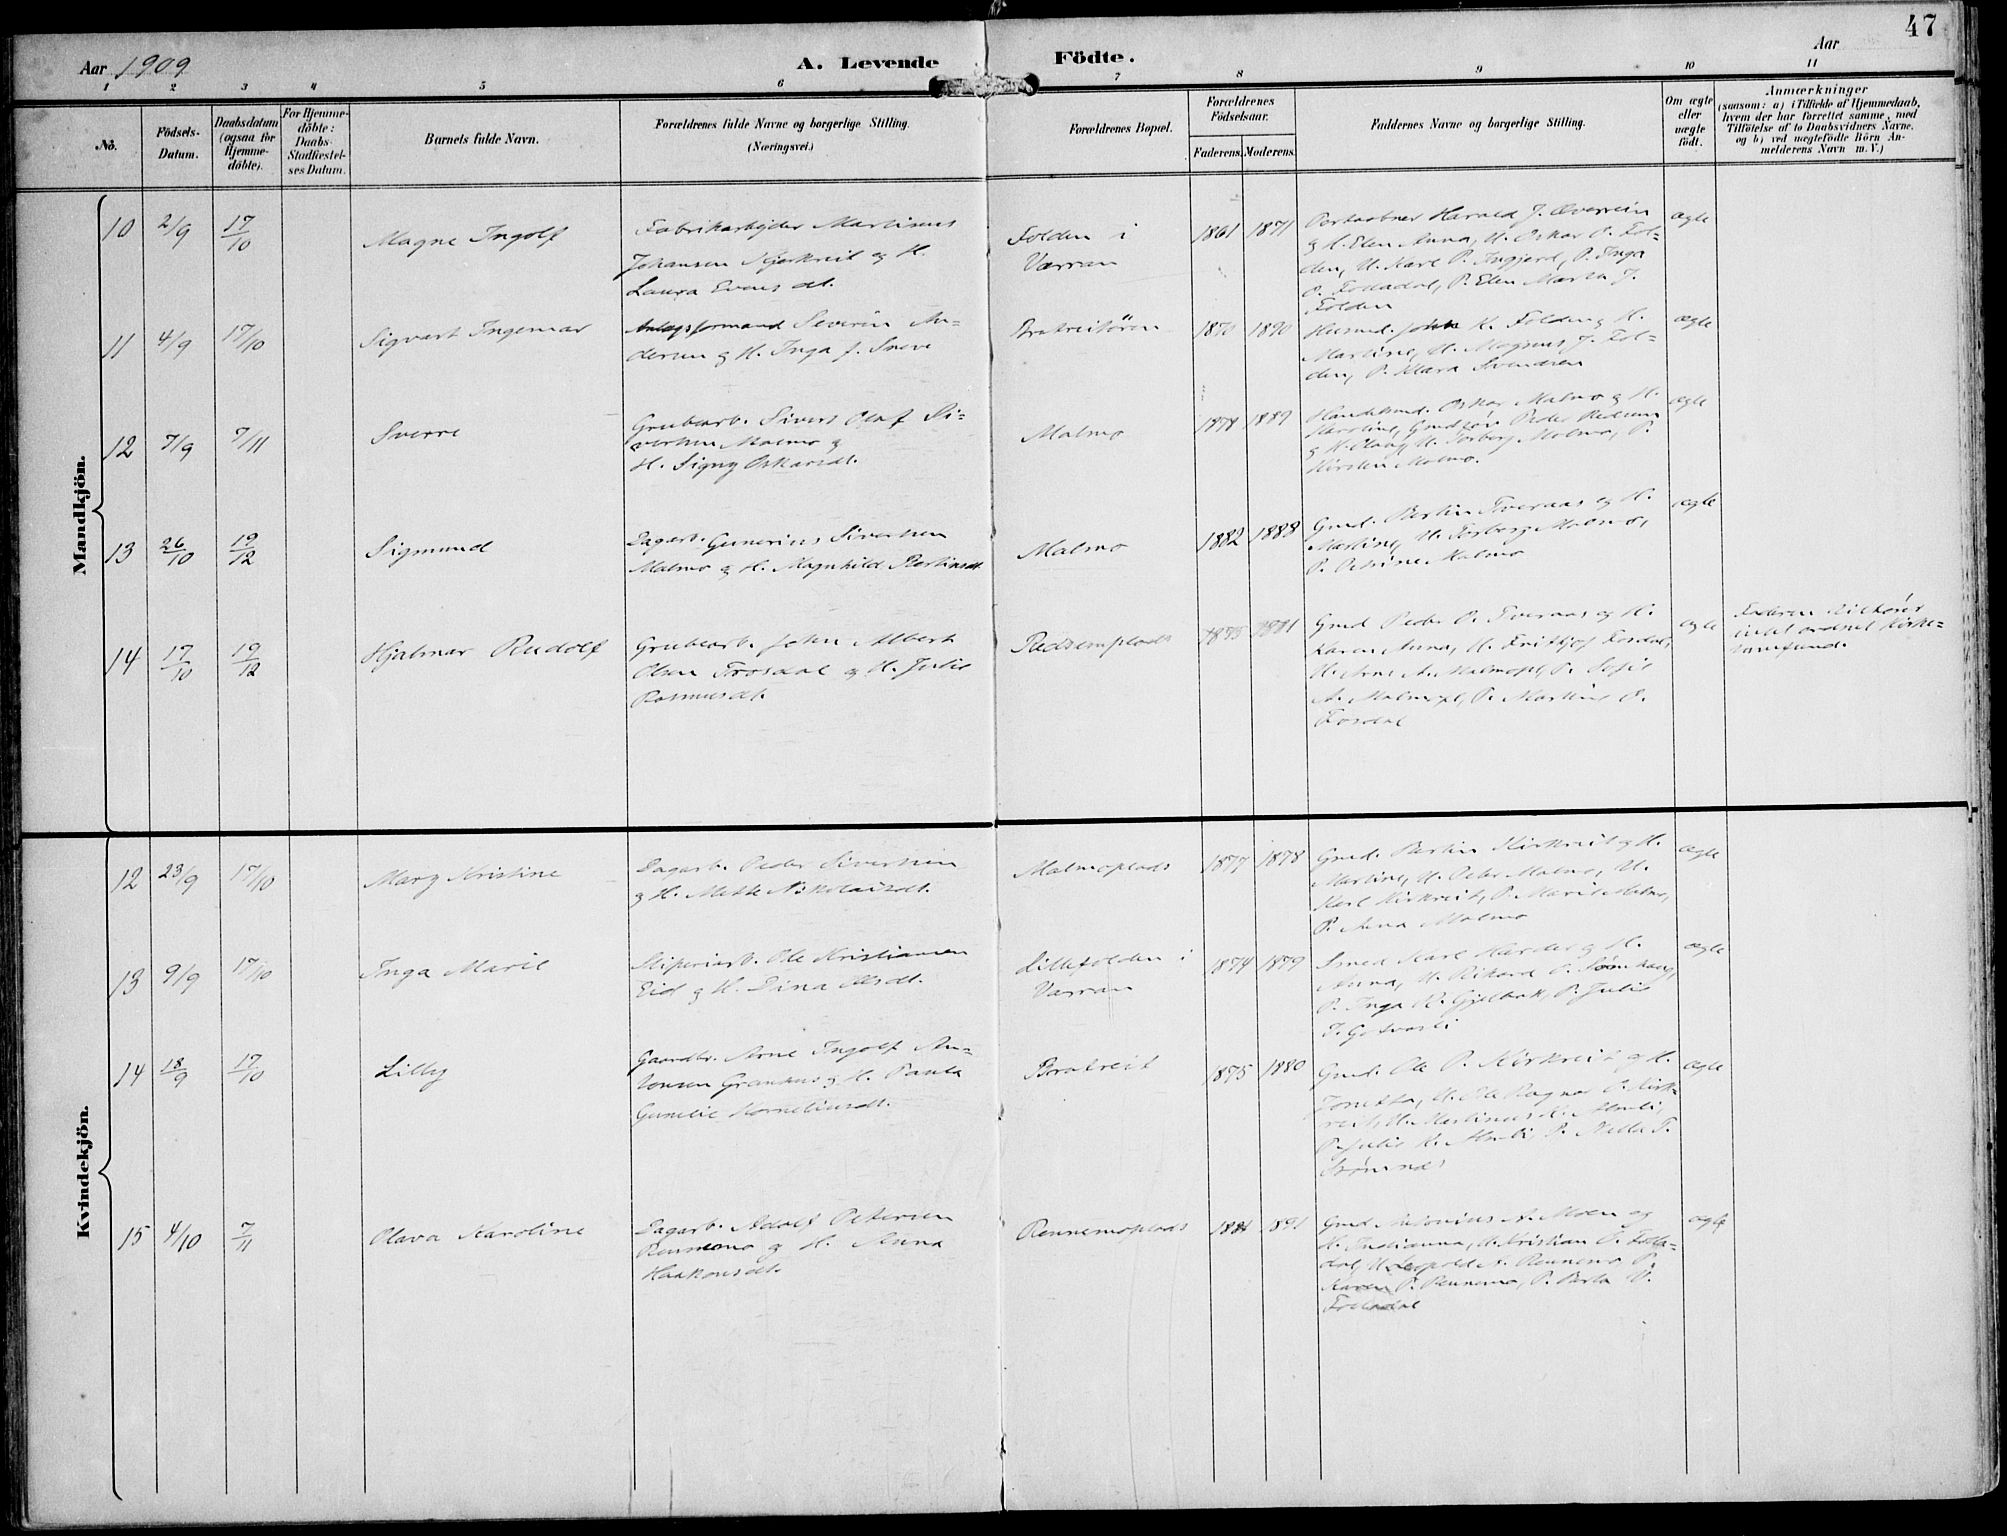 47
Aar 1909
A. Levende
Födte.
Aar
1 2 3 4 5 6 7 8 9 10 11
No.
Födsels-
Datum.
Daabsdatum
(ogsaa for
Hjemme-
döbte).
For Hjemme-
döbte:
Daabs-
Stadfæstel-
ses Datum.
Barnets fulde Navn.
Forældrenes fulde Navne og borgerlige Stilling.
(Næringsvei.)
Forældrenes Bopæl.
Forældrenes
Födselsaar.
Faderens. Moderens.
Faddernes Navne og borgerlige Stilling.
Om ægte
eller
uægte
født.
Anmærkninger
(saasom: a) i Tilfælde af Hjemmedaab,
hvem der har forrettet samme, med
Tilføielse af to Daabsvidners Navne,
og b) ved uægtefødte Börn An-
melderens Navn m. V.)
Mandkjön.
10 2/9 17/10
Magne Ingolf
Fabrikarbejder Martinus
Johansen Kjerkreit og H.
Laura Evensdt.
Folden i
Værran
1861 1871
Harald J.
og H. Elen Anna, U. Oskar P. Fol-
den, U. Karl P. P. Inga
P. Folladal, P. Elen Marta J.
Folden
ægte
11 4/9 17/10
Sigvart Ingemar
Anlægsformand Severin An-
dersen og H. Inga J. Sneve
Bratreitören
1870 1890
Husmd. John K. Folden og H.
Martine, U. Magnus J. Fol-
den, P. Klara Svendsen
ægte
12 7/9 7/11
Sverre
Grubearb. Sivert Olaf Si-
vertsen Malmo og
H. Signy Oskarsdt.
Malmo
1889
Oskar Malmo og H.
Karoline, Peder
og H. Olaug, U. Torberg Malmo, P.
Kirsten Malmo.
ægte
13 26/10 19/12
Sigmund
Dagarb. Gunerius Sivertsen
Malmo og H. Magnhild Bertinsdt.
Malmo
1882 1888
Gmd. Bertin Tveraas og H.
Martine, U. Torberg Malmo,
P. Petrine Malmo
ægte
14 17/10 19/12
Hjalmar Rudolf
Grubearb. John Albert
Olsen Fosdal og H. Julie
Rasmusdt.
Redsemplads
1875 1881
Gmd Peder P. Tveraas og H.
Karen Anna, U. Frithjof Fosdal,
U. Arne A. Malmopl, P. Sofie
A. Malmopl, P. Martine O.
Fosdal
ægte
Faderen tilhører
intet ordnet Kirke-
samfund.
Kvindekjön.
12 23/9 17/10
Mary Kristine
Dagarb. Peder Sivertsen
og H. Mette Nikolaisdt.
Malmoplads
1877 1878
Gmd. Bertin Kirkreit og H.
Martine, U. Peter Malmo, U.
Karl Kirkreit, P. Marit Malmo,
P. Anna Malmo
ægte
13 9/9 17/10
Inga Marie
Sliperiarb. Ole Kristiansen
Eid og H. Dina Olsdt.
Lillefolden i
Værran
1874 1879
Smed Karl Harder og H.
Anna, U. Rikard P.
P. Inga P. Julie
ægte
14 18/9 17/10
Lilly
Gaardbr. Arne Ingolf An-
tonsen Grandhus og H. Paula
Gunelie Korneliusdt.
Bratreit
1875 1880
Gmd. Ole P. Kirkreit og H.
Jonetta, U. Ole Ragnar P. Kirk-
reit, U. Martinus
P. Julie K. P. Nella T.
ægte
15 4/10 7/11
Olava Karoline
Dagarb. Adolf Petersen
Rennemo og H. Anna
Haakonsdt.
Rennemoplads
1884 1891
Gmd Antonius A. Moen og
H. Indianna, U. Kristian P. Folla-
dal, U. Leopold A. Rennemo, P.
Karen P. Rennemo, P. Berta P.
Folladal
ægte